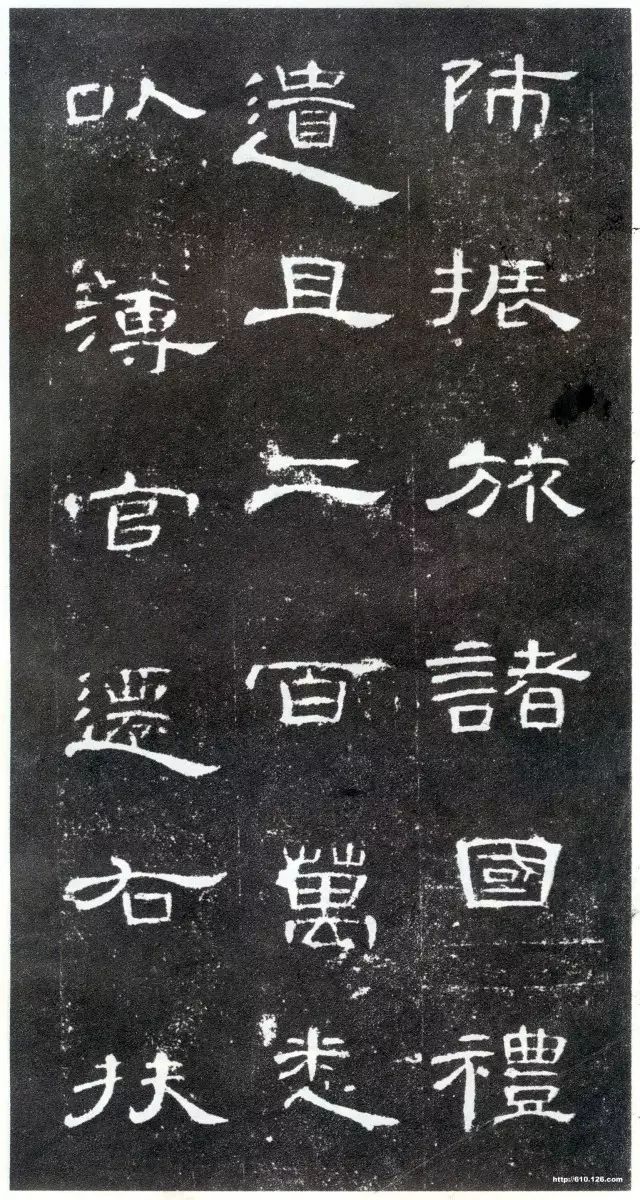 師振旅諸國禮
遺且二百萬悉
以薄官遷右扶
http://610.126.com